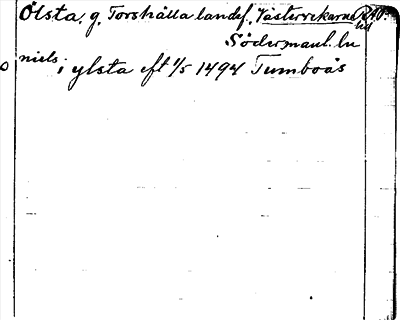 Ölsta, g. Torshälla landsf. Västerrekarne hd
Södermanl. ln
niels i ylsta eft 1/5 1494 Tumboås